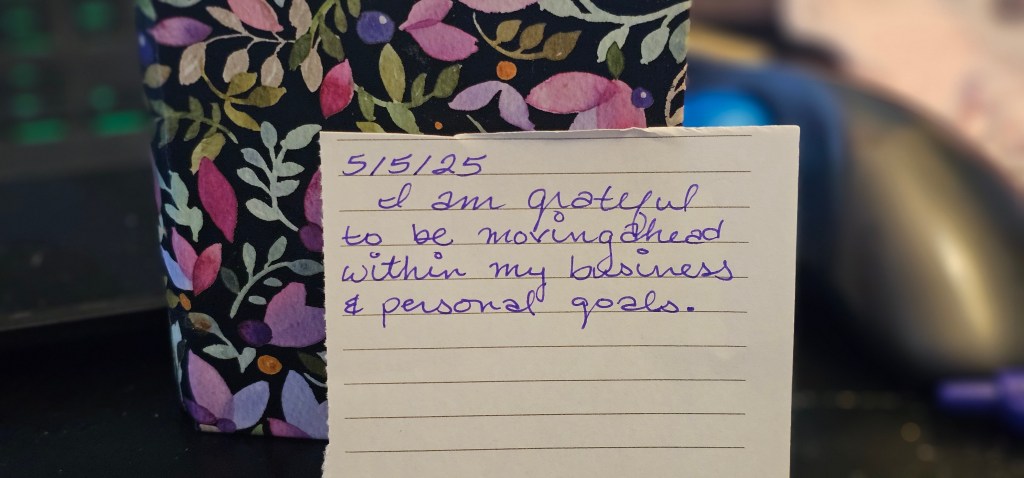 5/5/25
I am grateful
to be moving ahead
within my business
& personal goals.